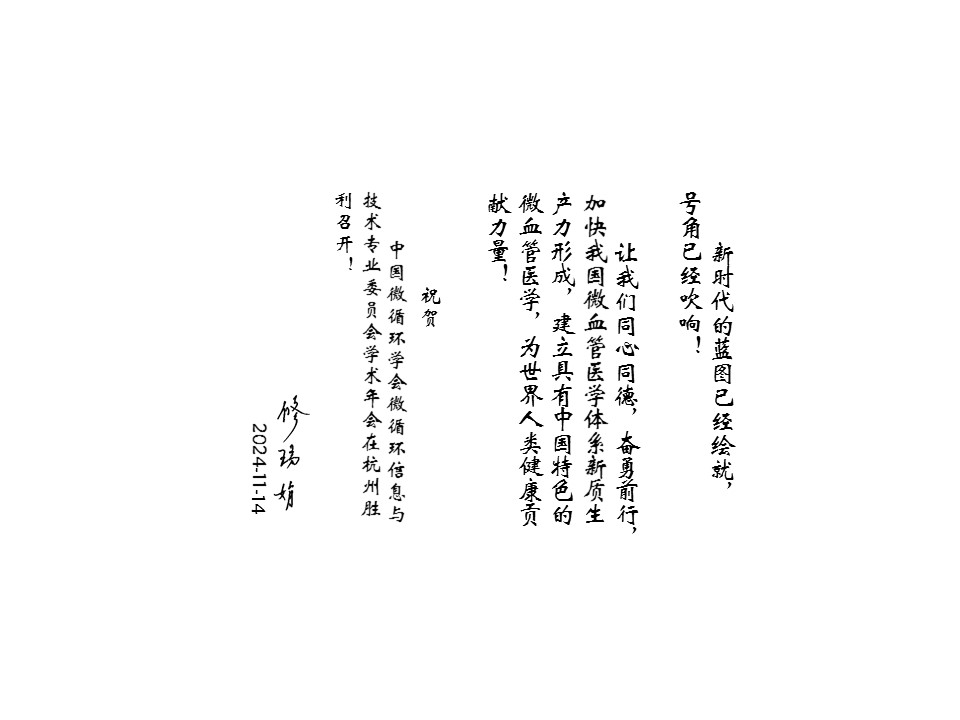 新时代的蓝图已经绘就，
号角已经吹响！
让我们同心同德，奋勇前行，
加快我国微血管医学体系新质生
产力形成，建立具有中国特色的
微血管医学，为世界人类健康贡
献力量！
祝贺
中国微循环学会微循环信息与
技术专业委员会学术年会在杭州胜
利召开！
修瑞娟
2024-11-14